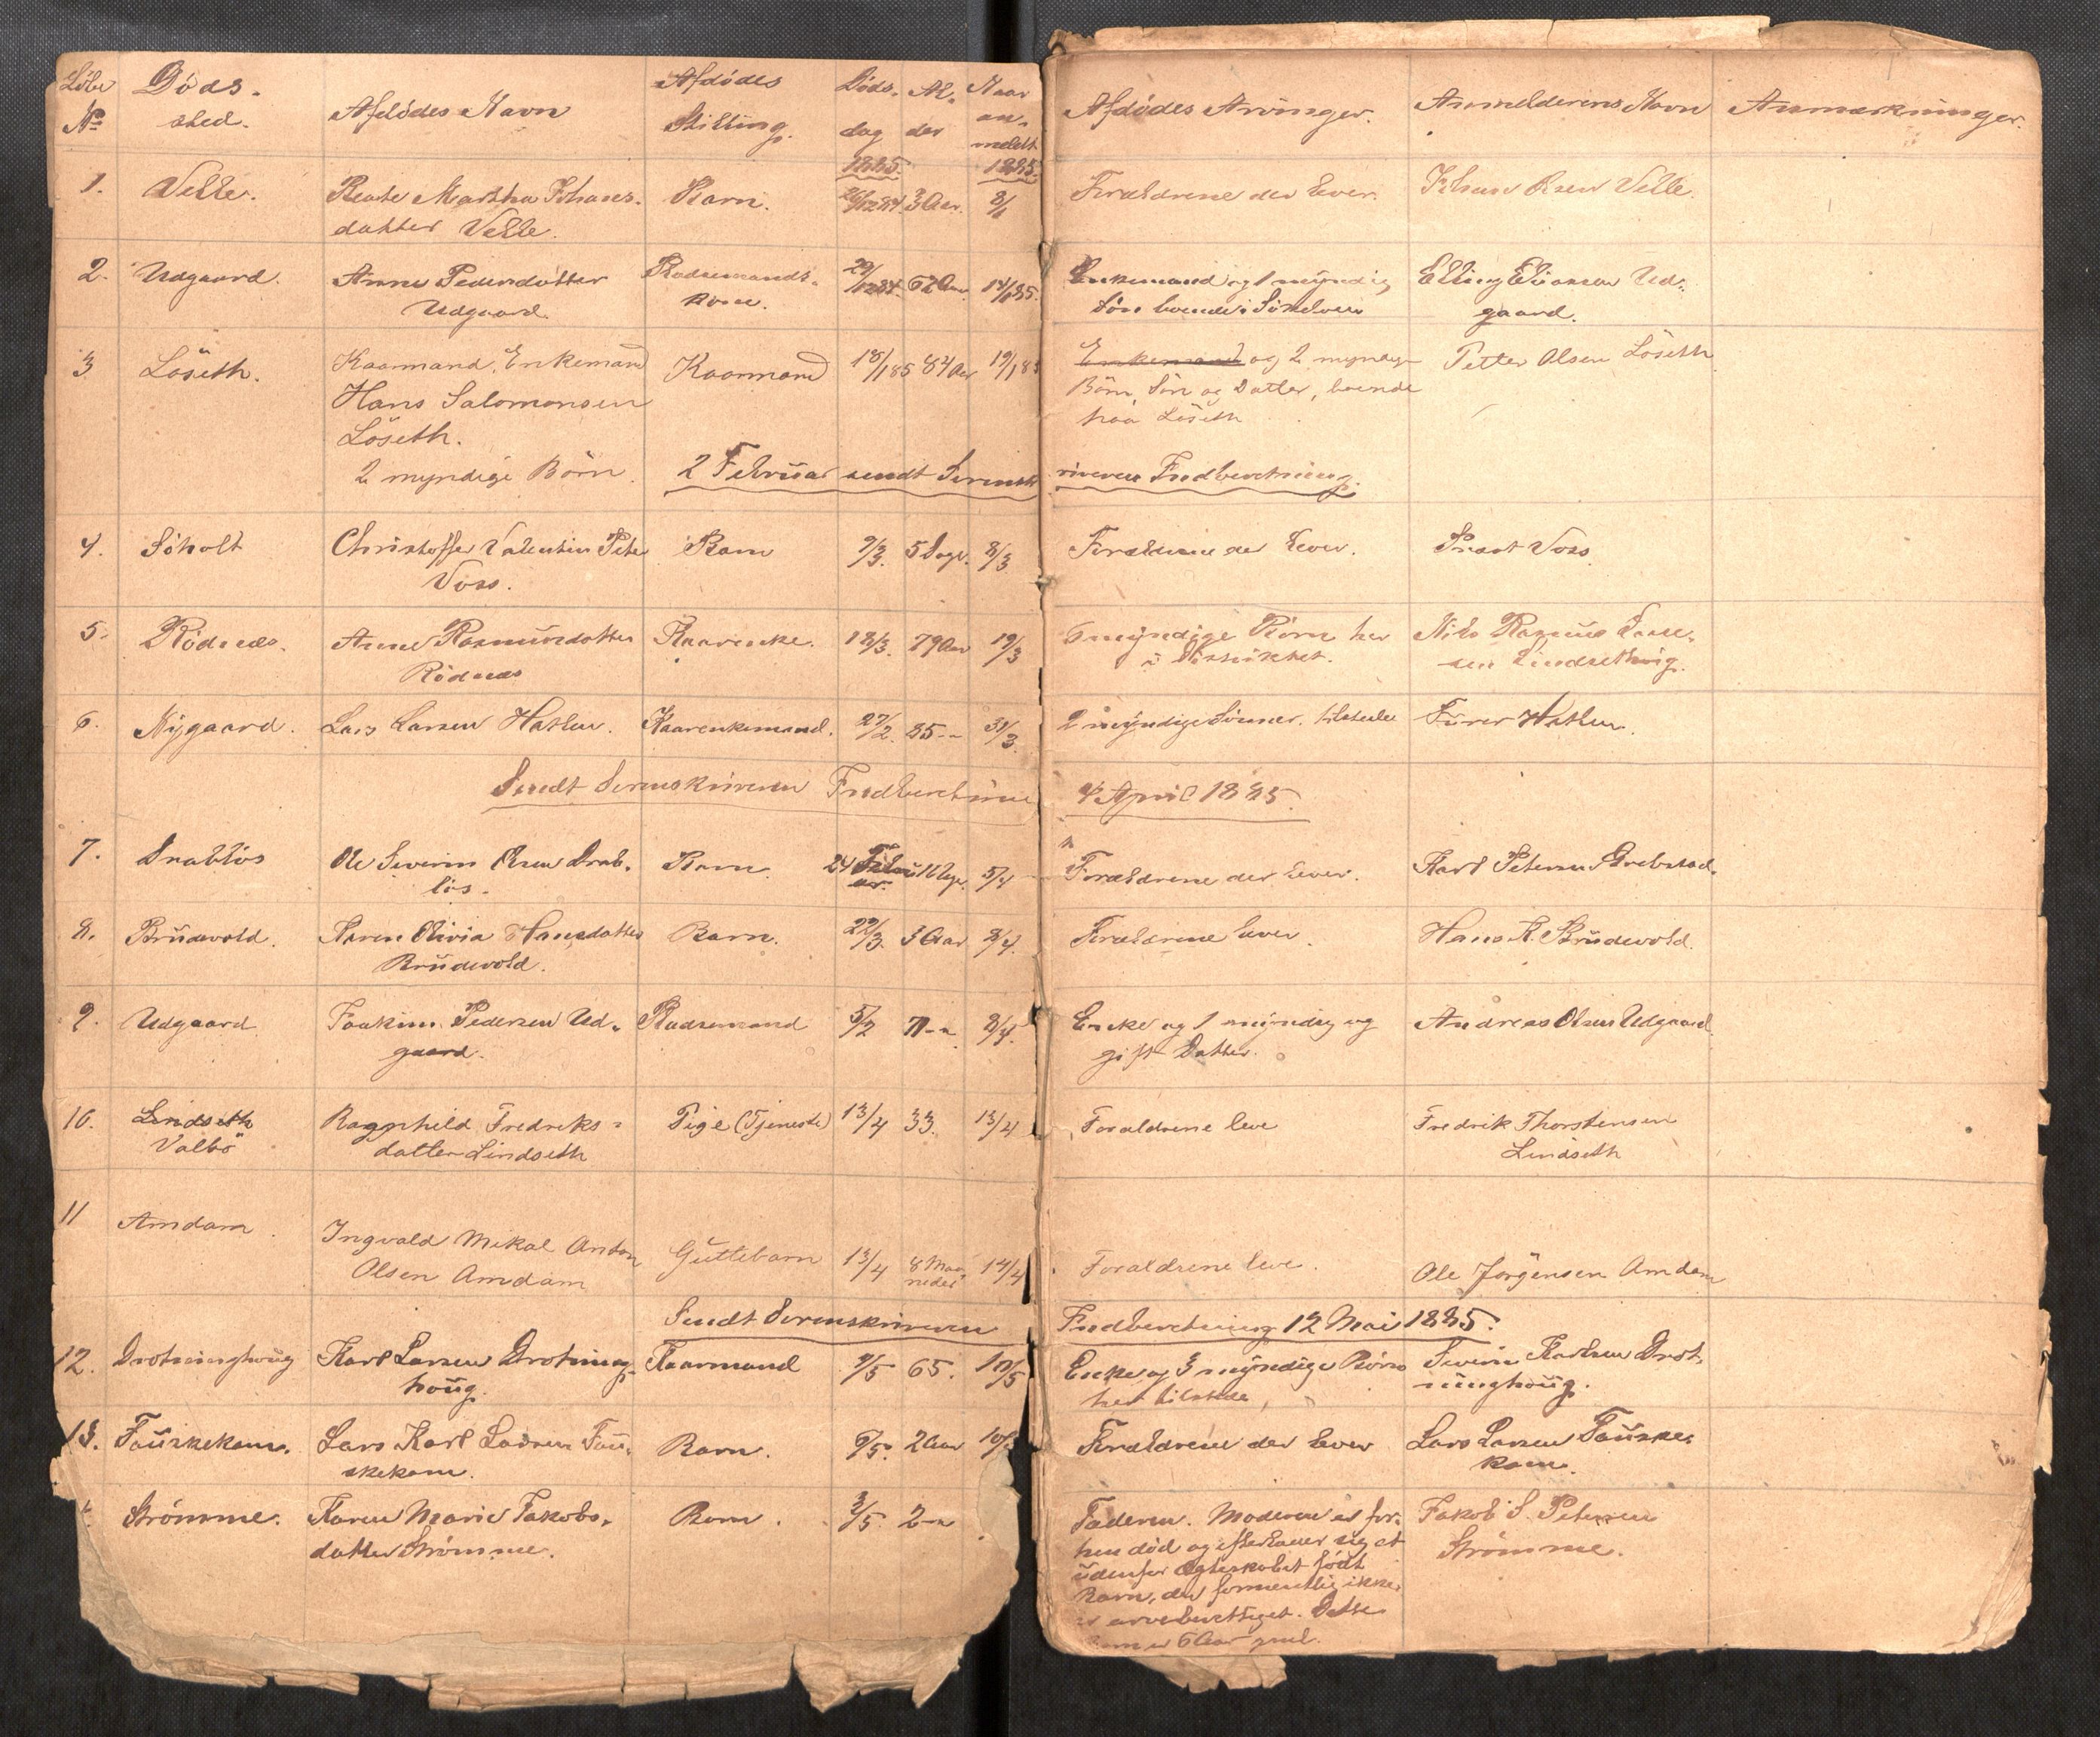 Löbe Döds- Afdödes Navn Afdödes Döds- Al- Naar Afdödes Arvinger. Anmelderens Navn Anmærkninger.
№ sted. Stilling. dag der an-
meldt
1885. 1885.
1. Velle. Beate Martha Johans- Barn. 26/12 84. 3 Aar. 8/1 Foraldrene der lever. Johan Olsen Velle.
datter Velle.
2. Udgaard. Anne Pedersdatter Pladsemands- 29/12 84. 62 Aar 14/1 85. Enkemand og 1 myndig Elling Eliassen Ud-
Udgaard. kone. Sön boende i Söndre gaard.
3 Löseth. Kaarmand, Enkemand Kaarmand 18/1 85 84 Aar 19/1 85 Enkemand og 2 myndige Petter Olsen Löseth
Hans Salomonsen Börn, Sön og Datter, boende
Löseth. paa Löseth
2 myndige Börn. 2 Februar sendt Sorensk riveren Indberetning.
4. Söholt Christoffer Valentin Peter Barn 7/3. 5 Dage. 8/3 Foraldrene der lever. Provst Voss.
Voss.
5. Rödnæs. Anne Rasmusdatter Kaarenke. 18/3. 79 Aar 19/3 6 myndige Börn her Nils Rasmus
Rödnæs i Distriktet. sen Lindsethvig.
6. Nygaard. Lars Larsen Hatlen. Kaarenkemand. 27/2. 85-"- 31/3. 2 myndige Sönner. tilstede Furer Hatlen.
Sendt Sorenskriveren Indberetning 4 April 1885.
7. Drabløs Ole Severin Olsen Drab- Barn. 24 Febru- 5/4 Foraldrene der lever. Karl Petersen Brebstad.
løs. ar.
8. Brudevold. Karen Olivia Hansdatter Barn. 22/3. 3 Aar 8/4. Foraldrene lever. Hans K. Brudevold.
Brudevold.
9. Udgaard Joakim Pedersen Ud- Pladsemand 5/2 71-"- 8/4. Enke og 1 myndig og Andreas Olsen Udgaard.
gaard. gift Datter.
10. Lindseth Ragnhild Fredriks- Pige (Tjeneste) 13/4 33. 13/4 Foraldrene leve Fredrik Thorstensen
Valbö datter Lindseth Lindseth
11 Amdam. Ingvald Mikal Anton Guttebarn 13/4 8 Maa- 14/4 Foraldrene leve. Ole Jörgensen Amdam
Olsen Amdam neder
Sendt Sorenskriveren Indberetning 12 Mai 1885.
12. Drotninghoug Karl Larsen Drotning- Kaarmand 9/5 65. 10/5 Enke og 3 myndige Börn Severin Karlsen Drot-
houg. her tilstede, ninghoug.
13. Fauskekam. Lars Karl Larsen Fau- Barn. 9/5. 2 Aar 10/5 Foraldrene der lever Lars Larsen Fauske-
skekam. kam.
Strömme. Karen Marie Jakobs- Barn. 3/5 2-"- Faderen. Moderen er for- Jakob S. Petersen
datter Strömme. hen död og efterlader sig et Strömme.
udenfor Ægteskabet född
Barn, der formentlig ikke
er arveberettiget. Dette
Barn er 6 Aar gml.